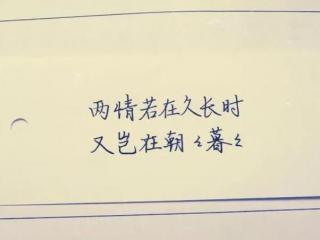 两情若在久长时
又岂在朝々暮々